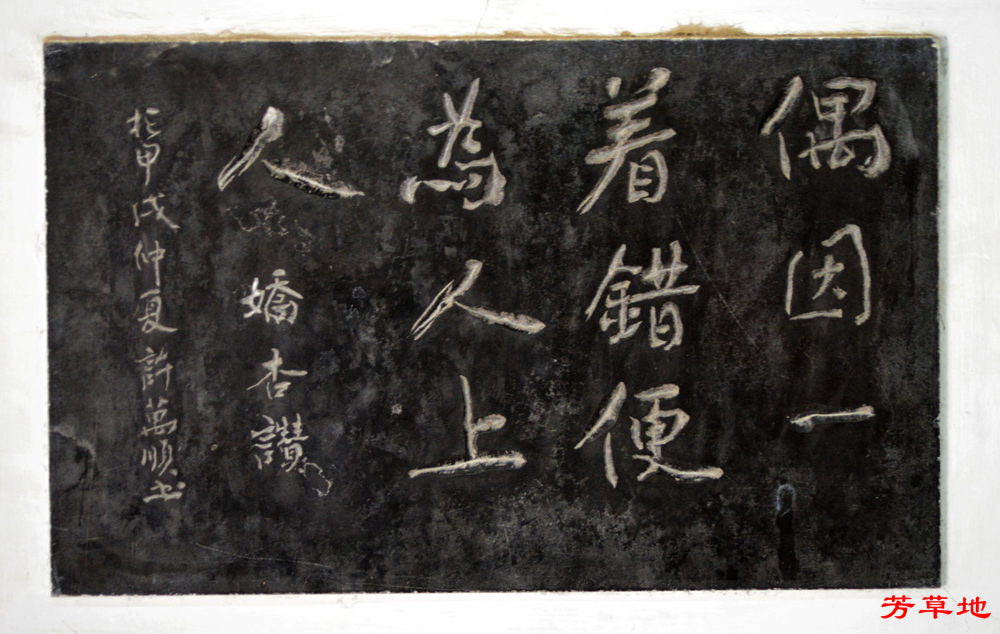 偶因一
着錯便
為人上
人
嬌杏讚
於甲戌仲夏許萬順书
芳草地